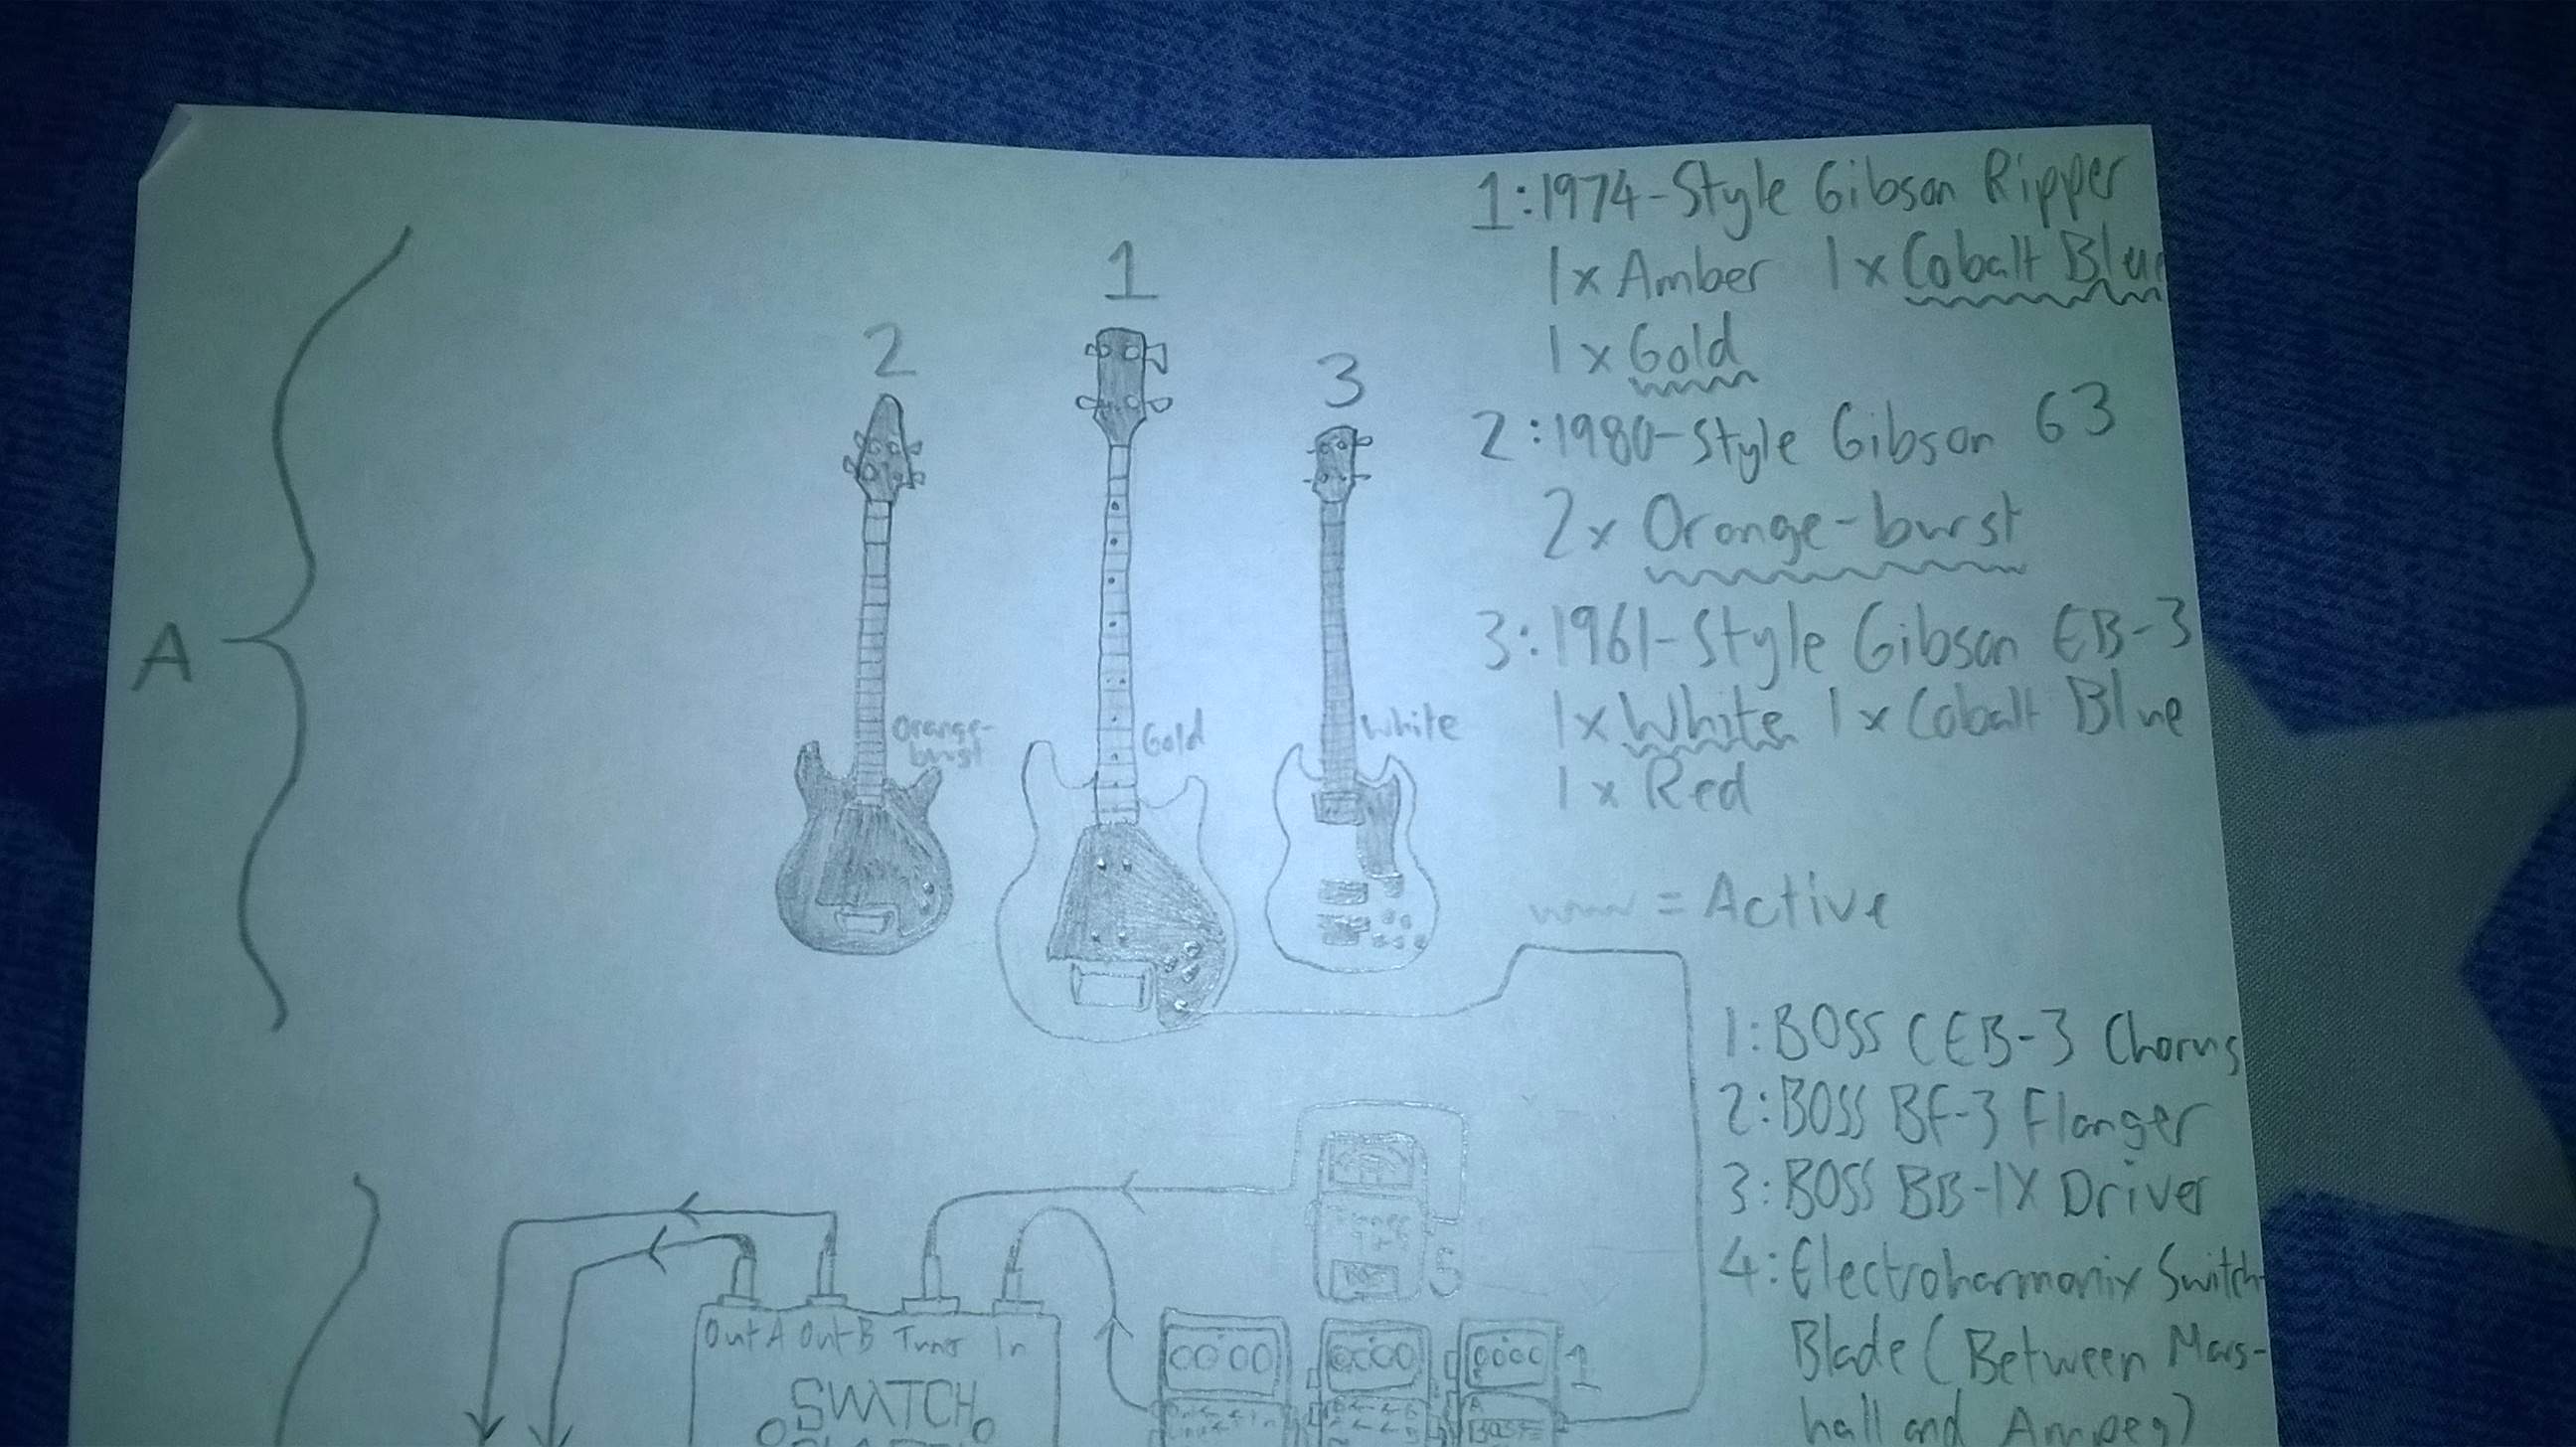 1:1974-Style Gibson Ripper
1x Amber 1x Cobalt Blue
1x Gold
2:1980-Style Gibson G3
2x Orange-burst
3:1961-Style Gibson EB-3
1x White 1x Cobalt Blue
1x Red
= Active
1
2
3
A
Orange-
burst
Gold
White
1:BOSS CEB-3 Chorus
2:BOSS BF-3 Flanger
3:BOSS BB-1X Driver
4:Electroharmonix Switch
Blade (Between Mars-
hall and Ampeg)
5
Out A Out B Tuner In
SWITCH
1